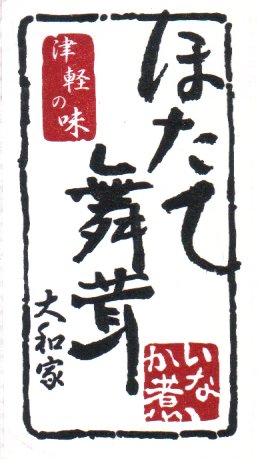 ほたて
舞茸
津軽
の味
いな
か煮
大和家